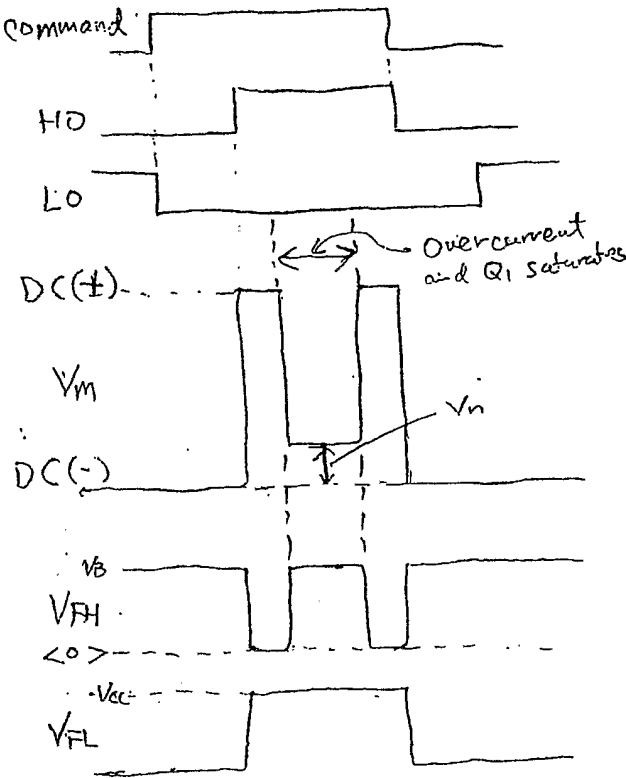 Command
HO
LO
Overcurrent
and Q1 saturates
DC(+)
Vm
Vn
DC(-)
VB
VFH
<0>
Vcc
VFL